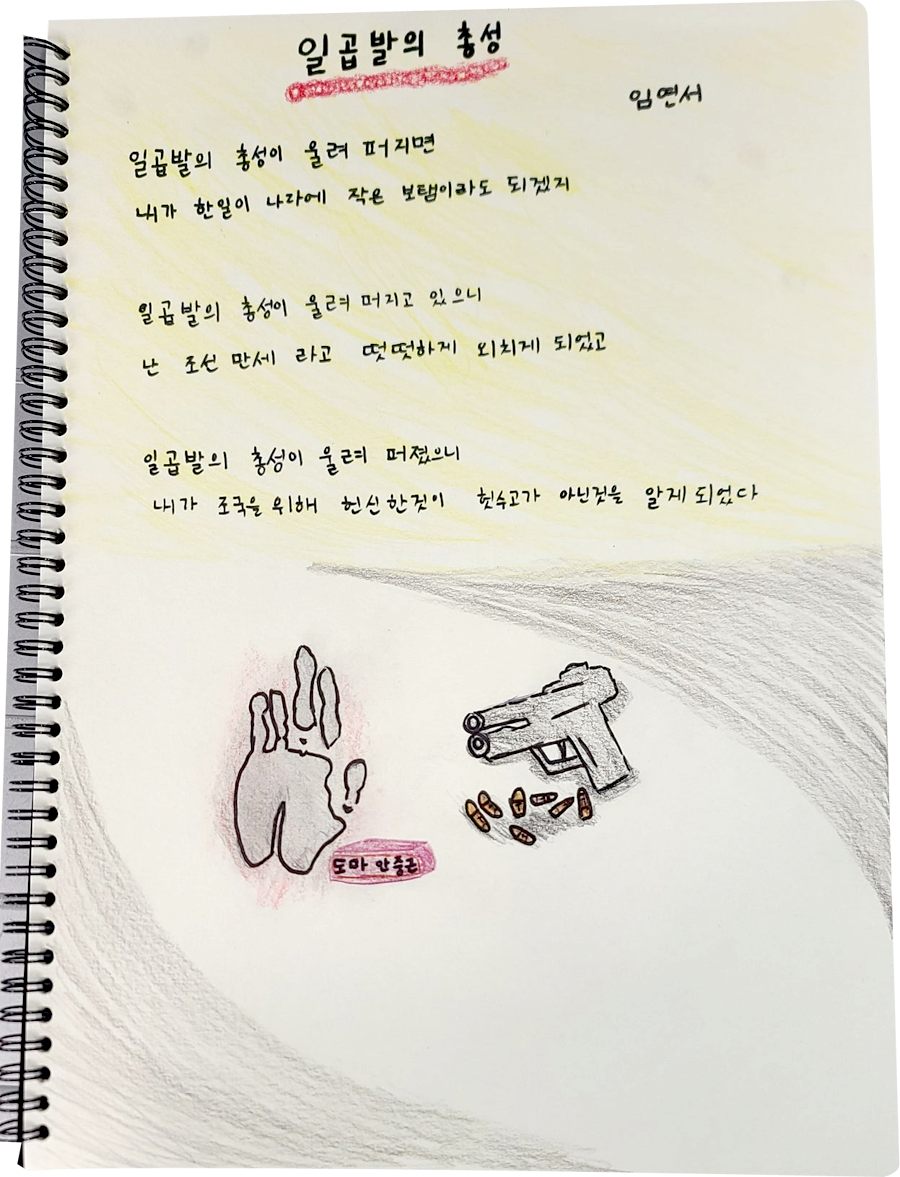 일곱발의 총성
임연서
일곱발의 총성이 울려 퍼지면
내가 한일이 나라에 작은 보탬이라도 되겠지
일곱발의 총성이 울려 퍼지고 있으니
난 조선 만세 라고 떳떳하게 외치게 되었고
일곱발의 총성이 울려 퍼졌으니
내가 조국을 위해 헌신한것이 헛수고가 아닌것을 알게 되었다
도마 안중근